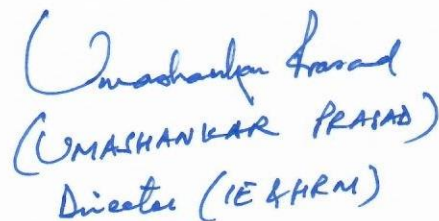 Umashankar Prasad
(UMASHANKAR PRASAD)
Director (IE & HRM)